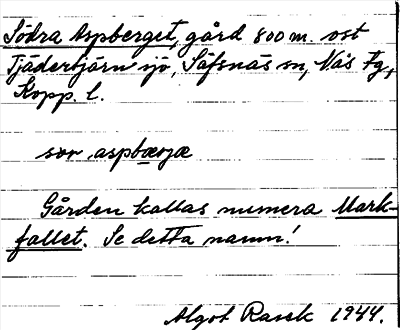 Södra Aspberget, gård 800 m. ost
Tjädertjärn sjö, Säfsnäs sn, Näs Fg,
Kopp. l.
sœr aspbœrjæ
Gården kallas numera Mark-
fallet. Se detta namn!
Algot Rasck 1944.